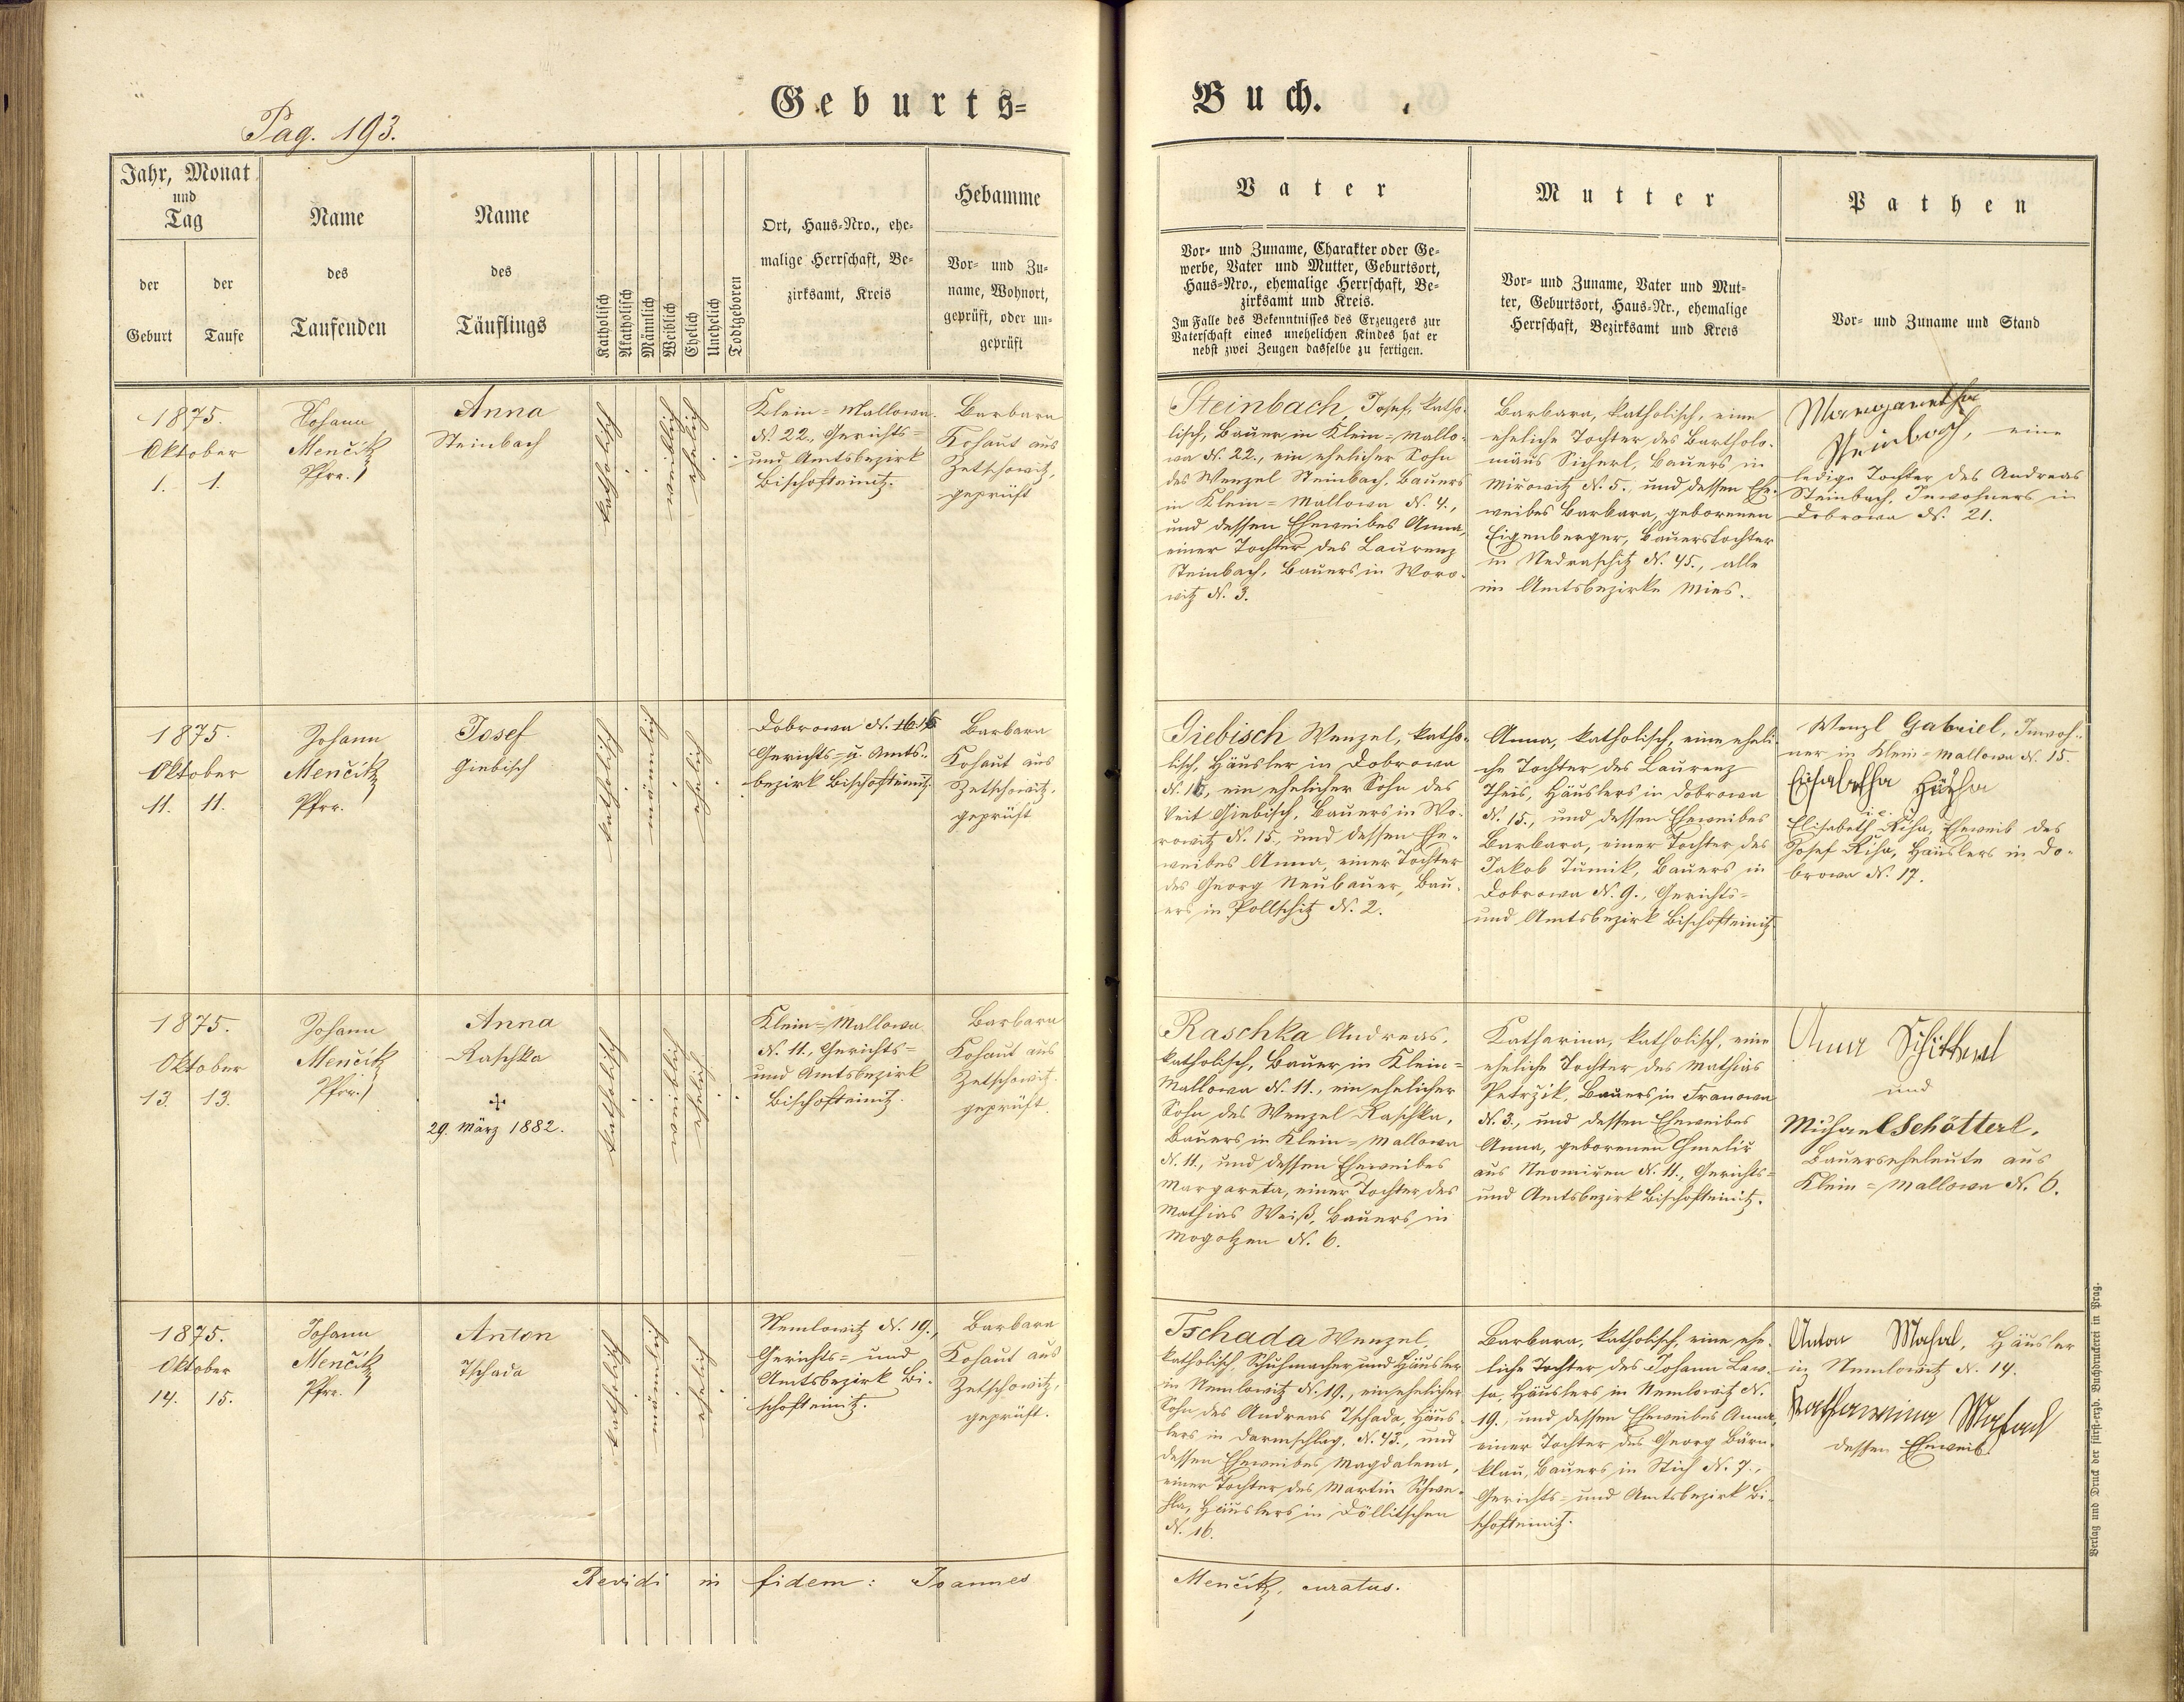 Geburts=
Buch.
Pag. 193.
Jahr, Monat
und
Tag
der
Geburt
der
Taufe
Name
des
Taufenden
Name
des
Täuflings
Katholisch
Akatholisch
Männlich
Weiblich
Ehelich
Unehelich
Todtgeboren
Ort, Haus=Nro., ehe=
malige Herrschaft, Be=
zirksamt, Kreis
Hebamme
Vor= und Zu=
name, Wohnort,
geprüft, oder un=
geprüft
Vater
Vor= und Zuname, Charakter oder Ge=
werbe, Vater und Mutter, Geburtsort,
Haus=Nro., ehemalige Herrschaft, Be=
zirksamt und Kreis.
Im Falle des Bekenntnisses des Erzeugers zur
Vaterschaft eines unehelichen Kindes hat er
nebst zwei Zeugen dasselbe zu fertigen.
Mutter
Vor= und Zuname, Vater und Mut=
ter, Geburtsort, Haus=Nr., ehemalige
Herrschaft, Bezirksamt und Kreis
Pathen
Vor= und Zuname und Stand
1875.
Oktober
1. 1.
Johann
Menčik
Pfrr.
Anna
Steinbach
katholisch
weiblich
ehelich
Klein=Mallowa
N. 22., Gerichts=
und Amtsbezirk
Bischofteinitz.
Barbara
Kohaut aus
Zetschowitz,
geprüft
Steinbach, Josef, katho=
lisch, Bauer in Klein=Mallo=
wa N. 22., ein ehelicher Sohn
des Wenzel Steinbach, Bauers
in Klein=Mallowa N. 4.,
und dessen Eheweibes Anna,
einer Tochter des Laurenz
Steinbach, Bauers in Woro=
witz N. 3.
Barbara, katholisch, eine
eheliche Tochter des Bartholo=
mäus Sicherl, Bauers in
Mirowitz N. 5. und dessen Ehe=
weibes Barbara, geborenen
Eigenberger, Bauerstochter
in Nedraschitz N. 45., alle
im Amtsbezirke Mies.
Margaretha
Steinbach, eine
ledige Tochter des Andreas
Steinbach, Inwohners in
Dobrowa N. 21.
1875.
Oktober
11. 11.
Johann
Menčik
Pfrr.
Josef
Giebisch
katholisch
männlich
ehelich
Dobrowa N.
Gerichts= u. Amts=
bezirk Bischofteinitz.
Barbara
Kohaut aus
Zetschowitz,
geprüft
Giebisch Wenzel, katho=
lisch, Häusler in Dobrowa
N. 15, ein ehelicher Sohn des
Veit Giebisch, Bauers in Wo=
rowitz N. 15., und dessen Ehe=
weibes Anna, einer Tochter
des Georg Neubauer, Bau=
ers in Pollschitz N. 2.
Anna, katholisch, eine eheli=
che Tochter des Laurenz
Theis, Häuslers in Dobrowa
N. 15., und dessen Eheweibes
Barbara, einer Tochter des
Jakob Tumik, Bauers in
Dobrowa N. 9., Gerichts=
und Amtsbezirk Bischofteinitz.
Wenzl Gabriel, Inwoh=
ner in Klein=Mallowa N. 15.
i. e.
Elisabeth Řiha, Eheweib des
Josef Řiha, Häuslers in Do=
browa N. 17.
1875.
Oktober
13. 13.
Johann
Menčik
Pfrr.
Anna
Raschka
29. März 1882.
katholisch
weiblich
ehelich
Klein=Mallowa
N. 11., Gerichts=
und Amtsbezirk
Bischofteinitz.
Barbara
Kohaut aus
Zetschowitz,
geprüft.
Raschka Andreas,
katholisch, Bauer in Klein=
Mallowa N. 11., ein ehelicher
Sohn des Wenzel Raschka,
Bauers in Klein=Mallowa
N. 11., und dessen Eheweibes
Margareta, einer Tochter des
Mathias Weiß, Bauers in
Mogolzen N. 6.
Katharina, katholisch, eine
eheliche Tochter des Mathias
Petržik, Bauers in Franowa
N. 3., und dessen Eheweibes
Anna, geborenen Chmelir
aus N. 11., Gerichts=
und Amtsbezirk Bischofteinitz.
Anna Schötterl
und
Michael Schötterl,
Bauerseheleute aus
Klein=Mallowa N. 6.
1875.
Oktober
14. 15.
Johann
Menčik
Pfrr.
Anton
Tschada
katholisch
männlich
ehelich
Nemlowitz N. 19.,
Gerichts= und
Amtsbezirk Bi=
schofteinitz.
Barbara
Kohaut aus
Zetschowitz,
geprüft.
Tschada Wenzel,
katholisch, Schuhmacher und Häusler
in Nemlowitz N. 19., ein ehelicher
Sohn des Andreas Tschada, Häus=
lers in Darmschlag, N. 43., und
dessen Eheweibes Magdalena,
einer Tochter des Martin Schwe=
hla, Häuslers in Döllitschen
N. 16.
Barbara, katholisch, eine ehe=
liche Tochter des Johann
Häuslers in Nemlowitz N.
19., und dessen Eheweibes Anna,
einer Tochter des Georg Bärn=
klau, Bauers in Stich N. 7.,
Gerichts= und Amtsbezirk Bi=
schofteinitz.
Anton Häusler
in Nemlowitz N. 14.
Katharina
dessen Eheweib
Revidi in fidem: Joannes
Menčik, curatus.
Verlag und Druck der fürst=erzb. Buchdruckerei in Prag.